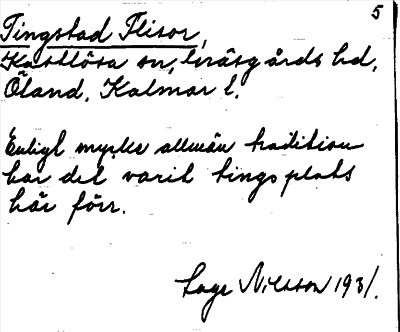 5
Tingstad Flisor,
Kastlösa sn, Gräsgårds hd,
Öland. Kalmar l.
Enligt mycke allmän tradition
har det varit tingsplats
här förr.
Lage Nilsson 1931.